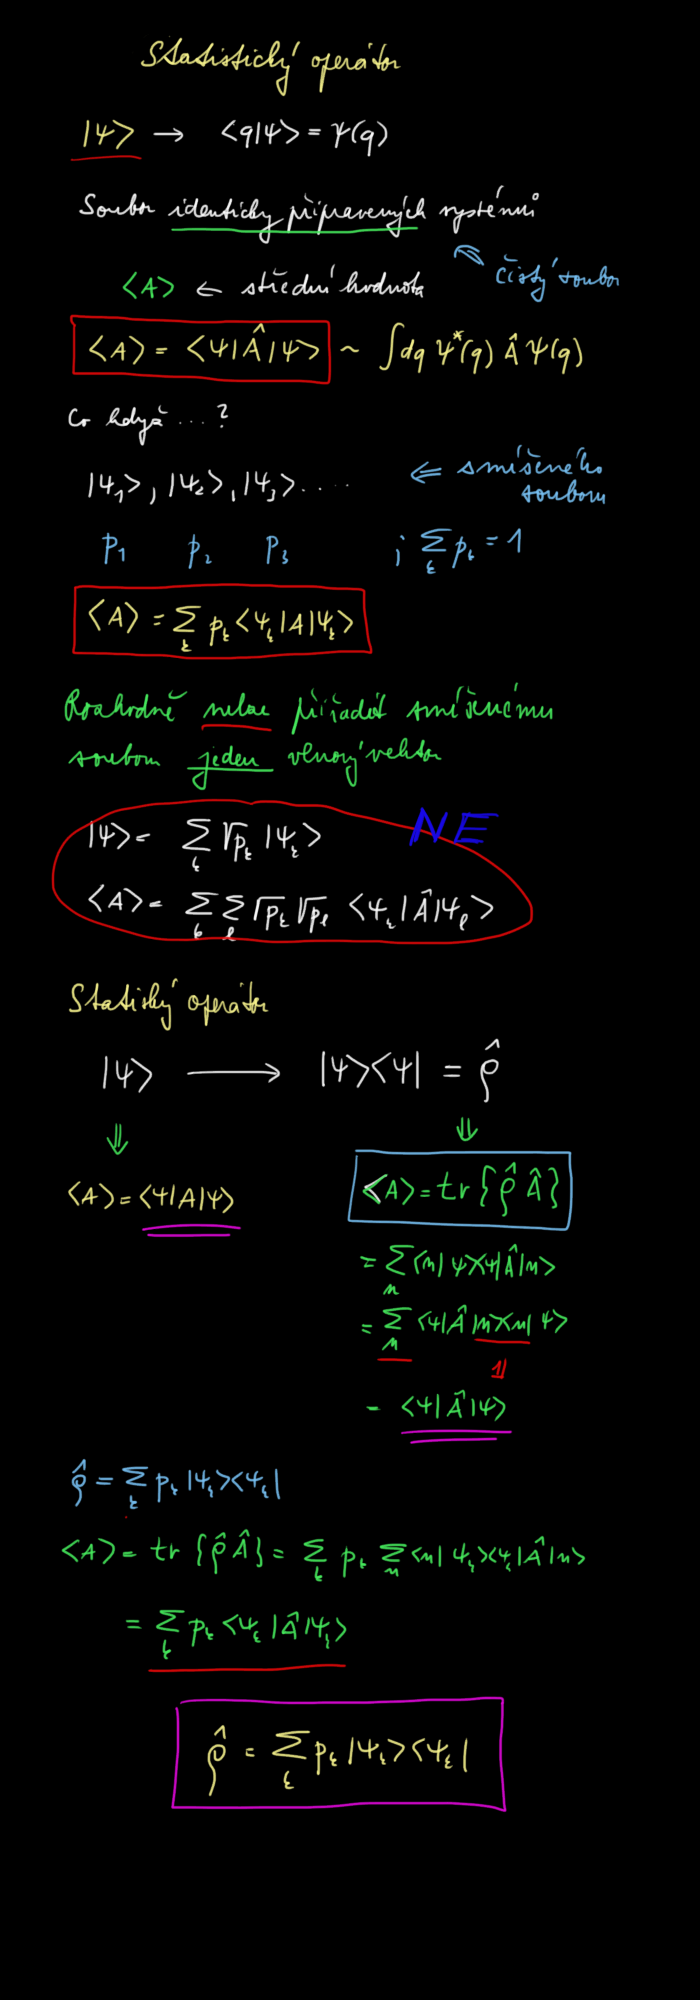 Statistický operátor
|ψ> → <q|ψ> = ψ(q)
Soubor identicky připravených systémů
<A> ← střední hodnota
čistý soubor
<A> = <ψ|Â|ψ> ~ ∫dq ψ*(q) Â ψ(q)
Co když ...?
|ψ₁>, |ψ₂>, |ψ₃> ..... ⇐ smíšeného
souboru
p₁ p₂ p₃ ; ∑ₖ pₖ = 1
<A> = ∑ₖ pₖ <ψₖ|A|ψₖ>
Rozhodně nelze přiřadit smíšenému
souboru jeden vlnový vektor
|ψ> = ∑ₖ √pₖ |ψₖ> NE
<A> = ∑ₖ ∑ₗ √pₖ √pₗ <ψₖ|Â|ψₗ>
Statický operátor
|ψ> ⟶ |ψ><ψ| = ρ̂
⇓ ⇓
<A> = <ψ|A|ψ> <A> = tr{ρ̂ Â}
= ∑ₙ <n|ψ><ψ|Â|n>
= ∑ₙ <ψ|Â|n><n|ψ>
1
= <ψ|Â|ψ>
ρ̂ = ∑ₖ pₖ |ψₖ><ψₖ|
<A> = tr {ρ̂ Â} = ∑ₖ pₖ ∑ₙ <n|ψₖ><ψₖ|Â|n>
= ∑ₖ pₖ <ψₖ|Â|ψₖ>
ρ̂ = ∑ₖ pₖ |ψₖ><ψₖ|